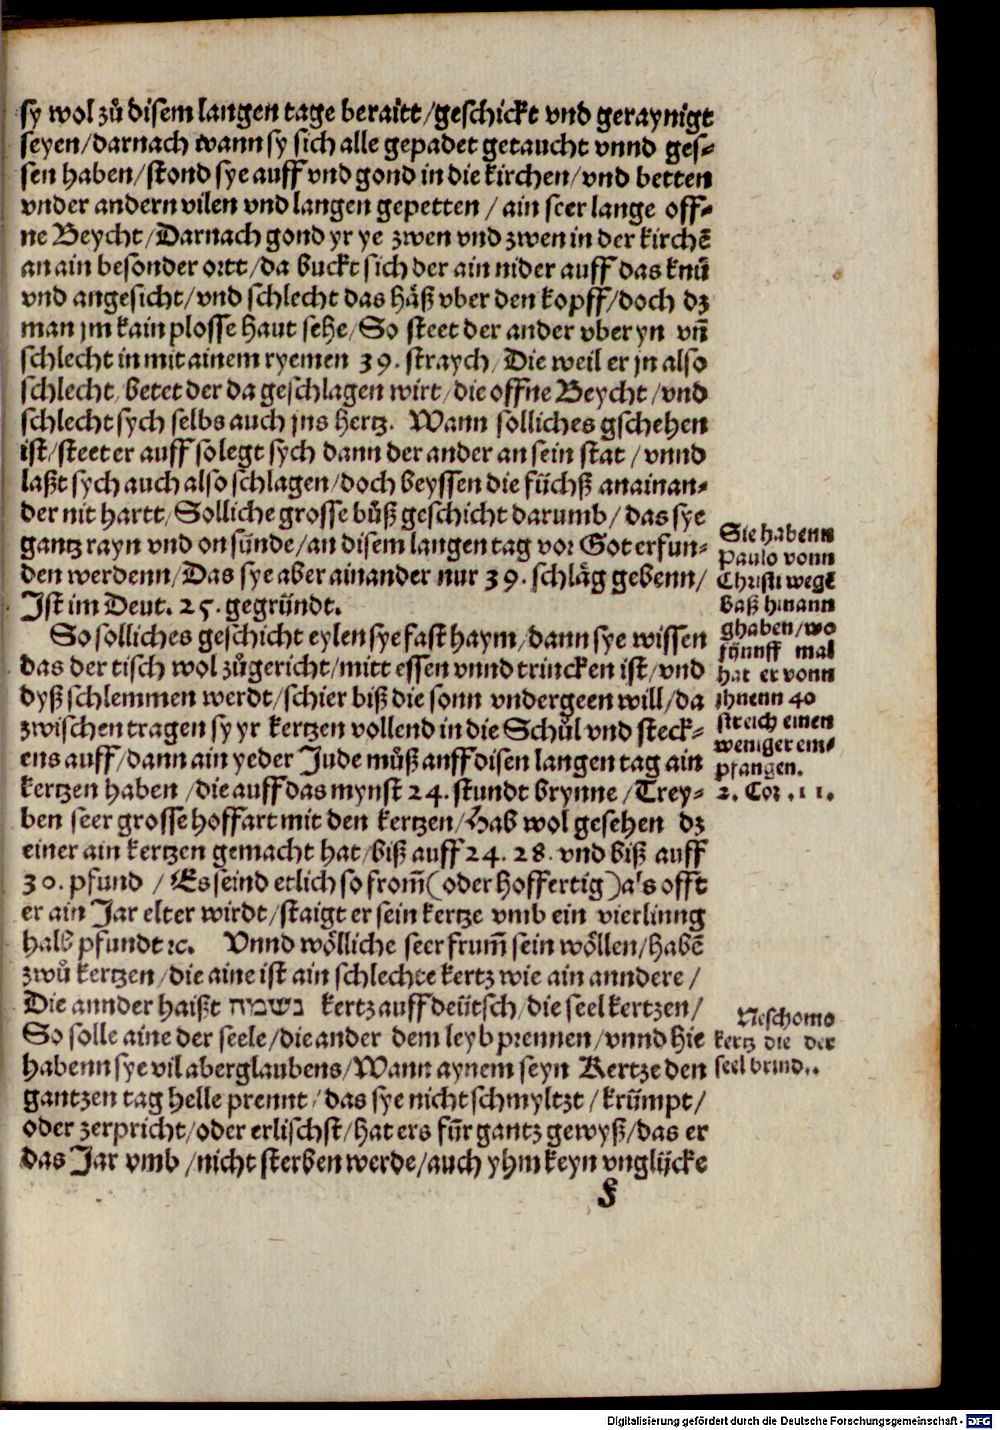 sy wol zů disem langen tage beraitt/geschickt vnd geraynigt
seyen/darnach wann sy sich alle gepadet getaucht vnnd ges⸗
sen haben/stond sye auff vnd gond in die kirchen/vnd betten
vnder andern vilen vnd langen gepetten / ain seer lange off⸗
ne Beycht/Darnach gond yr ye zwen vnd zwen in der kirchē
an ain besonder ortt/da buckt sich der ain nider auff das knü
vnd angesicht/vnd schlecht das häß vber den kopff/doch dz
man jm kain plosse haut sehe/So steet der ander vber yn vñ
schlecht in mit ainem ryemen 39. straych/Die weil er jn also
schlecht/betet der da geschlagen wirt/die offne Beycht/vnd
schlecht sych selbs auch jns hertz. Wann solliches gschehen
ist/steet er auff so legt sych dann der ander an sein stat / vnnd
laßt sych auch also schlagen/doch beyssen die füchß anainan⸗
der nit hartt/Solliche grosse bůß geschicht darumb/das sye
gantz rayn vnd on sünde/an disem langen tag vor Got erfun⸗
den werdenn/Das sye aber ainander nur 39. schläg gebenn/
Ist im Deut. 25. gegründt.
So solliches geschicht eylen sye fast haym/dann sye wissen
das der tisch wol zůgericht/mitt essen vnnd trincken ist/vnd
dyß schlemmen werdt/schier biß die sonn vndergeen will/da
zwischen tragen sy yr kertzen vollend in die Schůl vnd steck⸗
ens auff/dann ain yeder Jude můß auff disen langen tag ain
kertzen haben /die auff das mynst 24. stundt brynne/Trey⸗
ben seer grosse hoffart mit den kertzen/Hab wol gesehen dz
einer ain kertzen gemacht hat/biß auff 24. 28. vnd biß auff
30. pfund / Es seind etlich so from̃(oder hoffertig)als offt
er ain Jar elter wirdt/staigt er sein kertze vmb ein vierlinng
halb pfundt ꝛc. Vnnd wölliche seer frum̃ sein wöllen/habē
zwů kertzen/die aine ist ain schlechte kertz wie ain anndere/
Die annder haißt נשמה kertz auff deütsch/die seel kertzen/
So solle aine der seele/die ander dem leyb prennen/vnnd hie
habenn sye vil aberglaubens/Wann aynem seyn Kertze den
gantzen tag helle prennt/das sye nicht schmyltzt/krümpt/
oder zerpricht/oder erlischst/hat ers für gantz gewyß/das er
das Jar vmb /nicht sterben werde/auch yhm keyn vnglijcke
F
Sie habenn
Paulo vonn
Christi wegē
baß hinann
ghaben/wo
fünnff mal
hat er vonn
jhnenn 40
streich einen
weniger em⸗
pfangen.
2. Cor .11.
Neschomo
kertz die der
seel brind..
Digitalisierung gefördert durch die Deutsche Forschungsgemeinschaft - DFG